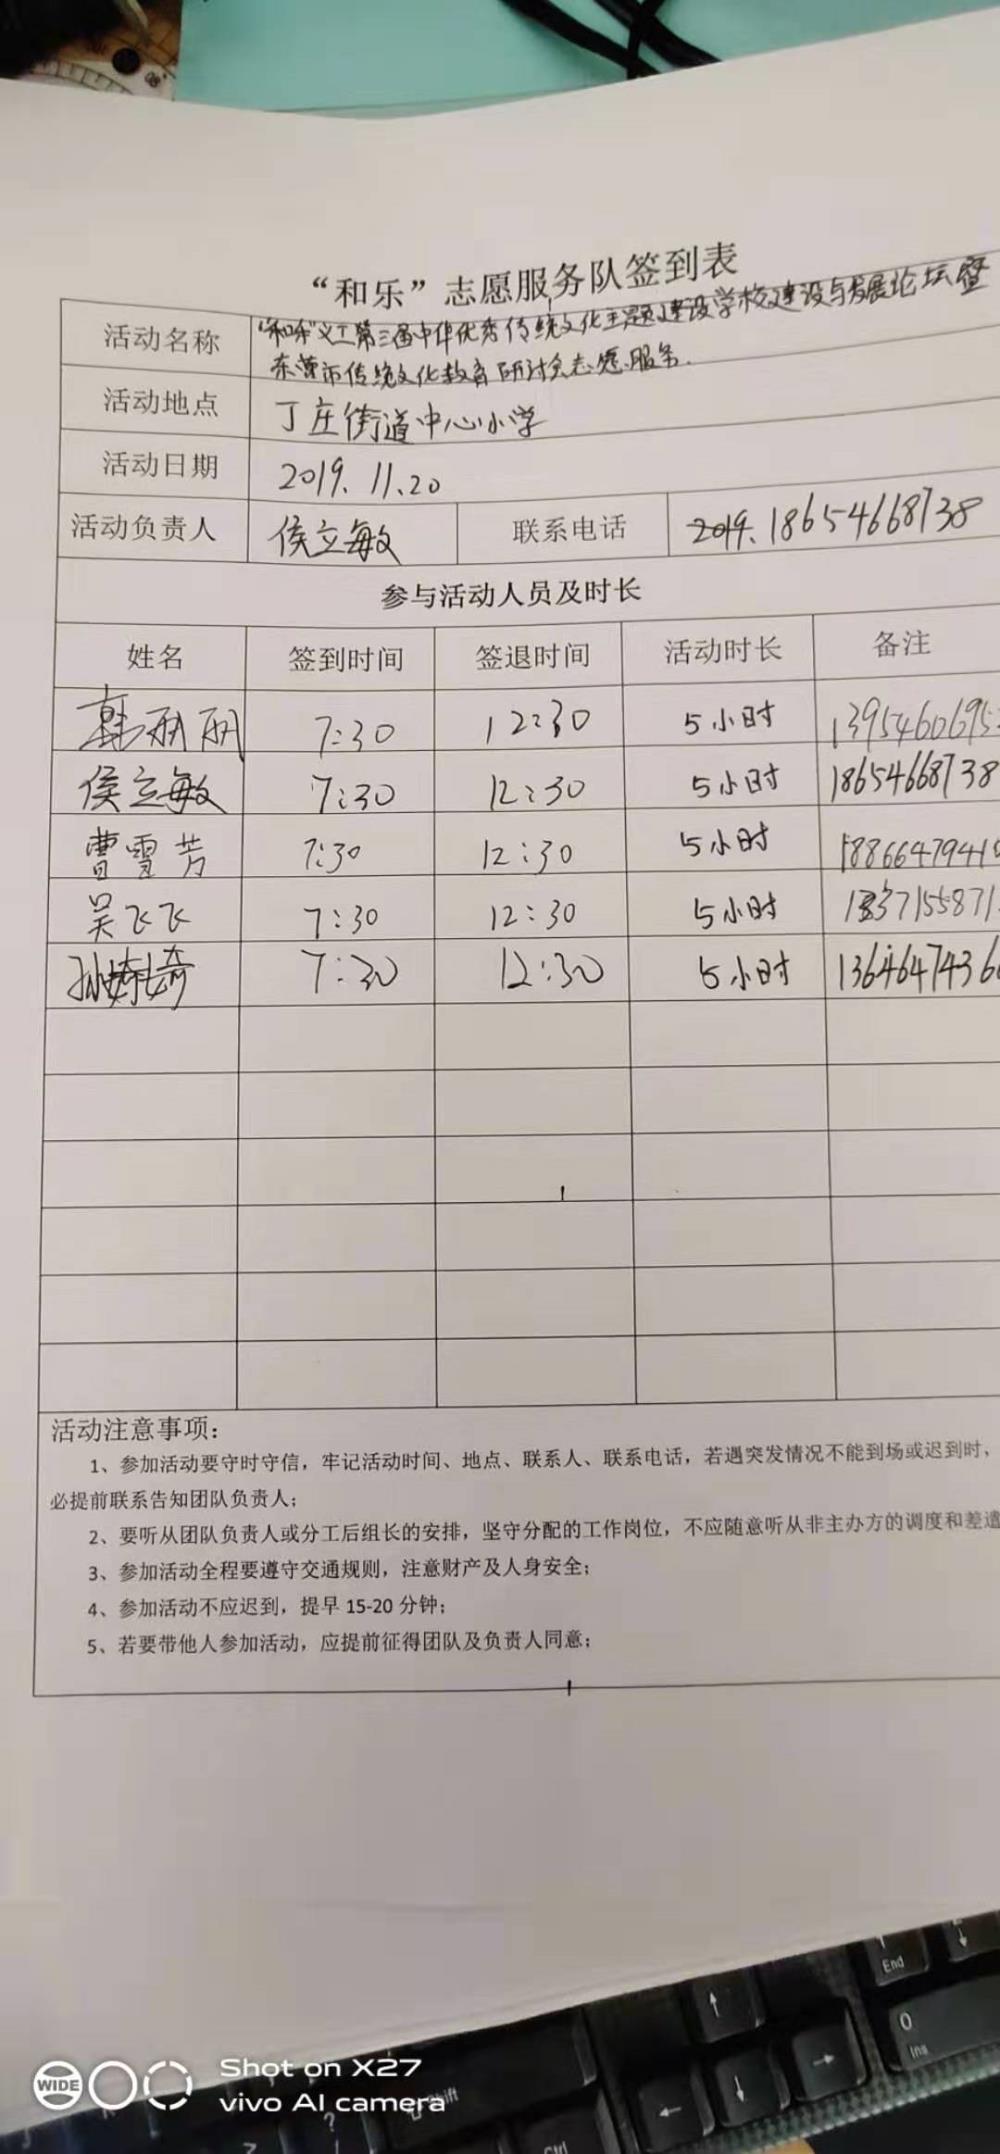 “和乐”志愿服务队签到表
活动名称 “和乐”义工第三届中华优秀传统文化主题建设学校建设与发展论坛暨
东营市传统文化教育研讨会志愿服务.
活动地点 丁庄街道中心小学
活动日期 2019.11.20
活动负责人 侯立敏 联系电话 2019.18654668738
参与活动人员及时长
姓名 签到时间 签退时间 活动时长 备注
韩丽丽 7:30 12:30 5小时 1395460695
侯立敏 7:30 12:30 5小时 18654668738
曹雪芳 7:30 12:30 5小时 1886647941
吴飞飞 7:30 12:30 5小时
孙婷婷 7:30 12:30 5小时 1364647436
活动注意事项：
1、参加活动要守时守信，牢记活动时间、地点、联系人、联系电话，若遇突发情况不能到场或迟到时，
必提前联系告知团队负责人；
2、要听从团队负责人或分工后组长的安排，坚守分配的工作岗位，不应随意听从非主办方的调度和差遣
3、参加活动全程要遵守交通规则，注意财产及人身安全；
4、参加活动不应迟到，提早 15-20 分钟；
5、若要带他人参加活动，应提前征得团队及负责人同意；
End
0
Ins
Shift
Ctrl
WIDE
Shot on X27
vivo AI camera